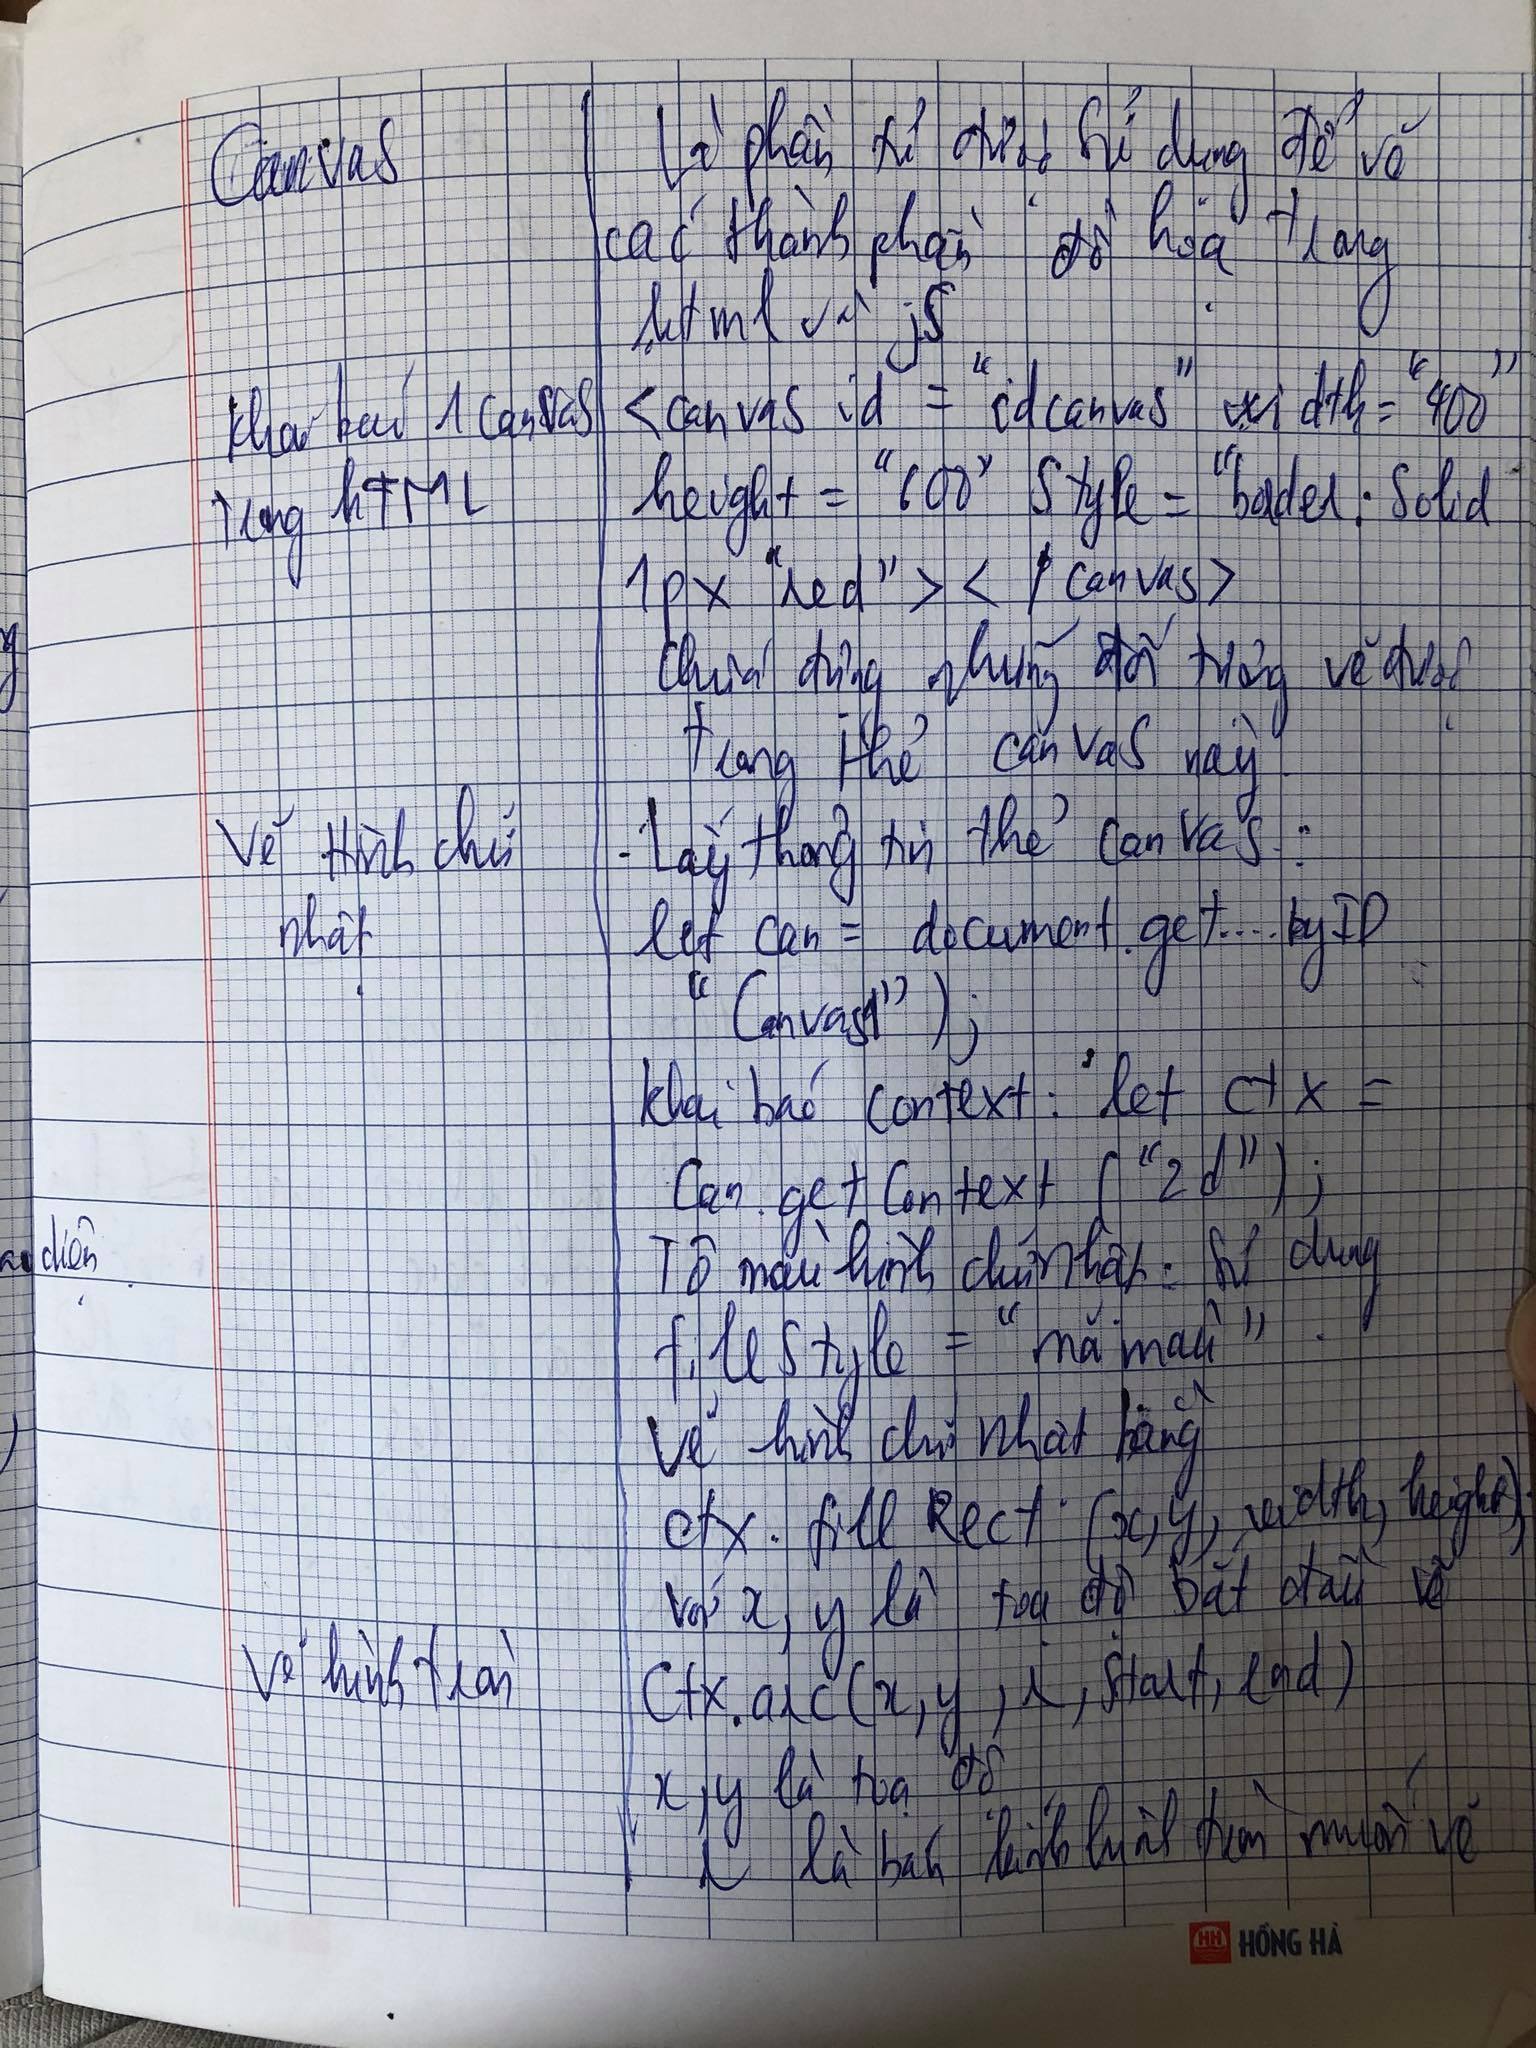 Canvas
Là phần tử được sử dụng để vẽ
các thành phần đồ hoạ trong
html và js
Khai báo 1 canvas
trong hTML
<canvas id = "idcanvas" width = "400"
height = "600" Style = "border: Solid
1px "red" > < / canvas>
chứa đựng những đối tượng vẽ được
trong thẻ canvas này
Vẽ Hình chữ
nhật
- Lấy thông tin thẻ canvas :
let can = document.get....byID
"Canvas1");
khai báo context: let ctx =
Can.getContext ("2d");
Tô màu hình chữ nhật: sử dụng
fillStyle = "mã màu"
Vẽ hình chữ nhật bằng
ctx. fillRect (x, y, width, height);
với x, y là toạ độ bắt đầu vẽ
Vẽ hình tròn
Ctx.arc(x, y, r, start, end)
x, y là toạ độ
r là bán kính hình tròn muốn vẽ
diện
HH HỒNG HÀ